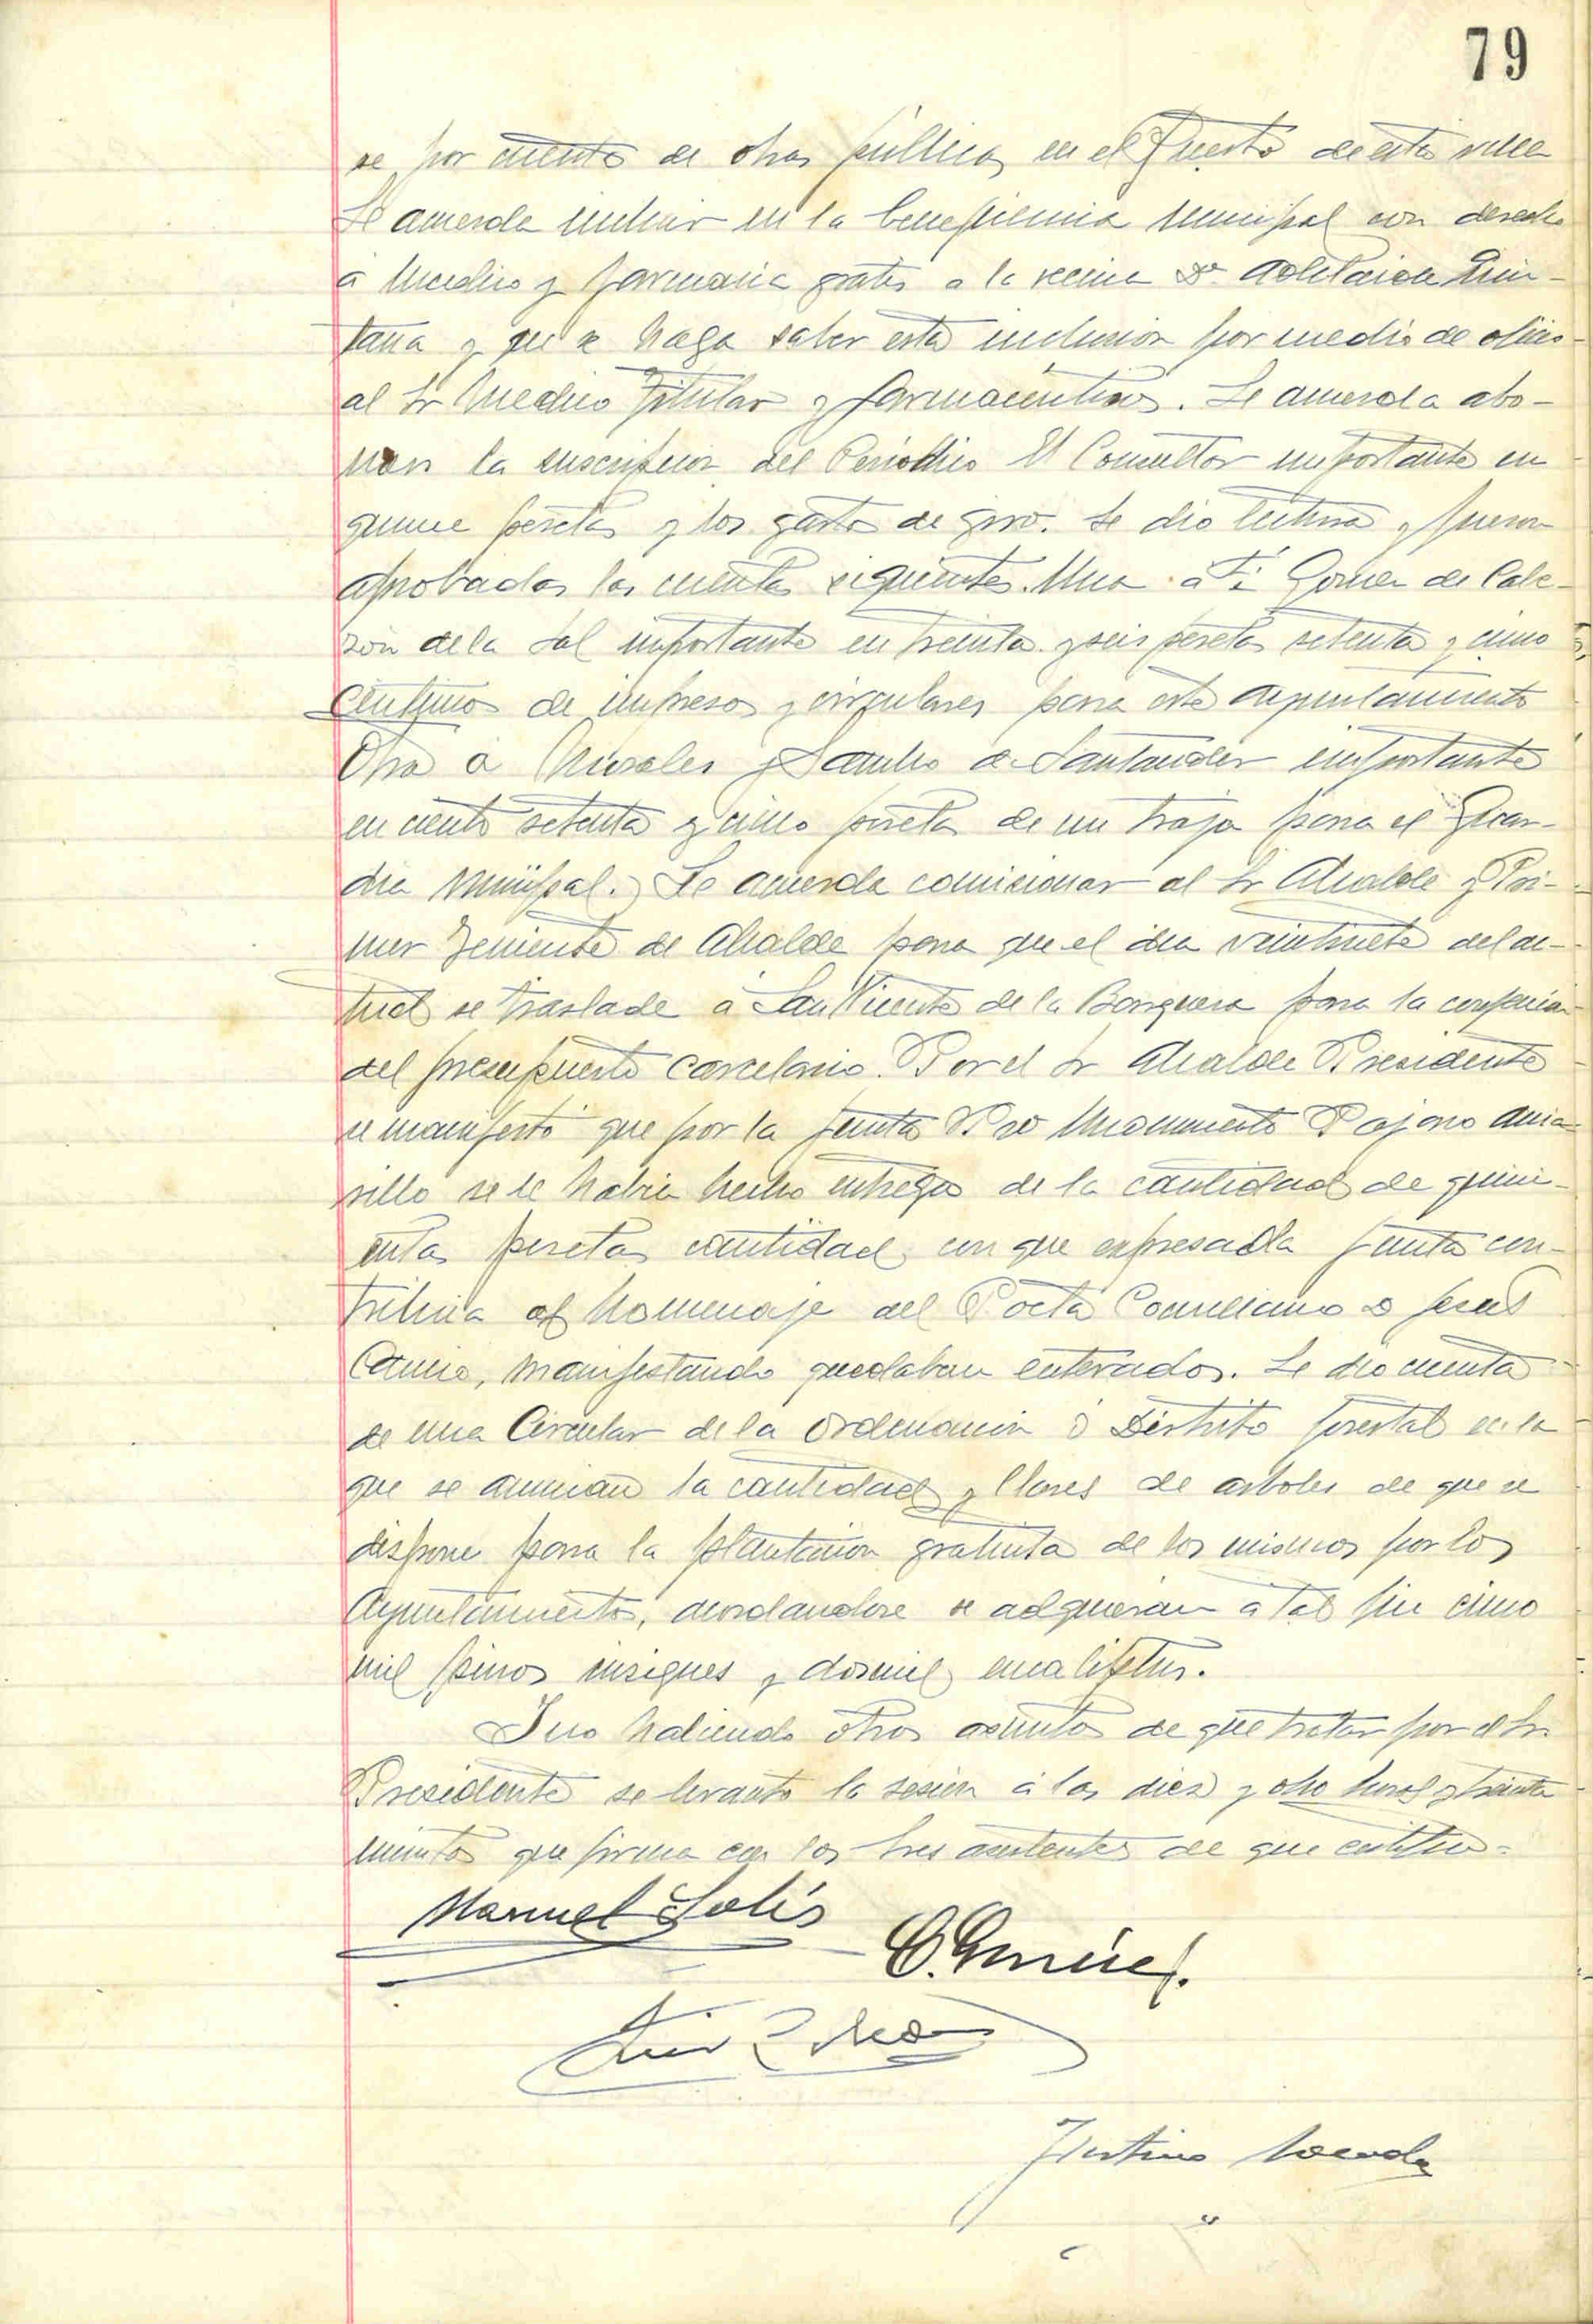 79
se por cuenta de obras públicas en el Puerto de esta villa
Se acuerda incluir en la beneficencia Municipal con derecho
a Medico y farmacia gratis a la vecina Dª Adelaida Quin-
tana y que se haga saber esta inclusion por medio de oficio
al Sr Medico Titular y farmaceuticos. Se acuerda abo-
nar la suscripcion del Periodico El Consultor importante en
quince pesetas y los gastos de giro. Se dio lectura y fueron
aprobadas las cuentas siguientes. Una a Gomez de Cabe-
zon de la Sal importante en treinta y seis pesetas setenta y cinco
centimos de impresos y circulares para este Ayuntamiento
Otra a Morales y Sancho de Santander importante
en ciento setenta y cinco pesetas de un traje para el Guar-
dia Municipal. Se acuerda comisionar al Sr Alcalde y Pri-
mer Teniente de Alcalde para que el dia veintisiete del ac-
tual se traslade a San Vicente de la Barquera para la confeccion
del presupuesto carcelario. Por el Sr Alcalde Presidente
se manifesto que por la Junta Pro Monumento Pajaro Ama-
rillo se le habia hecho entrega de la cantidad de quini-
entas pesetas cantidad con que expresada Junta con-
tribuia al homenaje del Poeta Comillano Jesus
Cancio, manifestando quedaban enterados. Se dio cuenta
de una Circular de la Ordenacion o Distrito forestal en la
que se anuncian la cantidad y clases de arboles de que se
dispone para la plantacion gratuita de los mismos por los
Ayuntamientos, acordandose se adquieran a tal fin cinco
mil pinos insignes y dosmil eucaliptus.
Y no habiendo otros asuntos de que tratar por el Sr
Presidente se levanto la sesion a las diez y ocho horas y treinta
minutos que firma con los tres asistentes de que certifico.
Manuel Solis
Luis